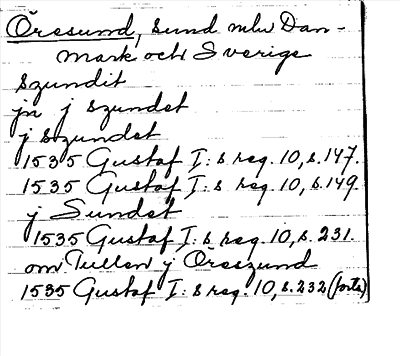 Öresund, sund mlw Dan-
mark och Sverige
szundit
jn j szundet
j szundet
1535 Gustaf I:s reg. 10, s. 147.
1535 Gustaf I:s reg. 10, s. 149.
j Sundet
1535 Gustaf I:s reg. 10, s. 231.
om Tullen j Öreszund
1535 Gustaf I:s reg. 10, s. 232 (forts)